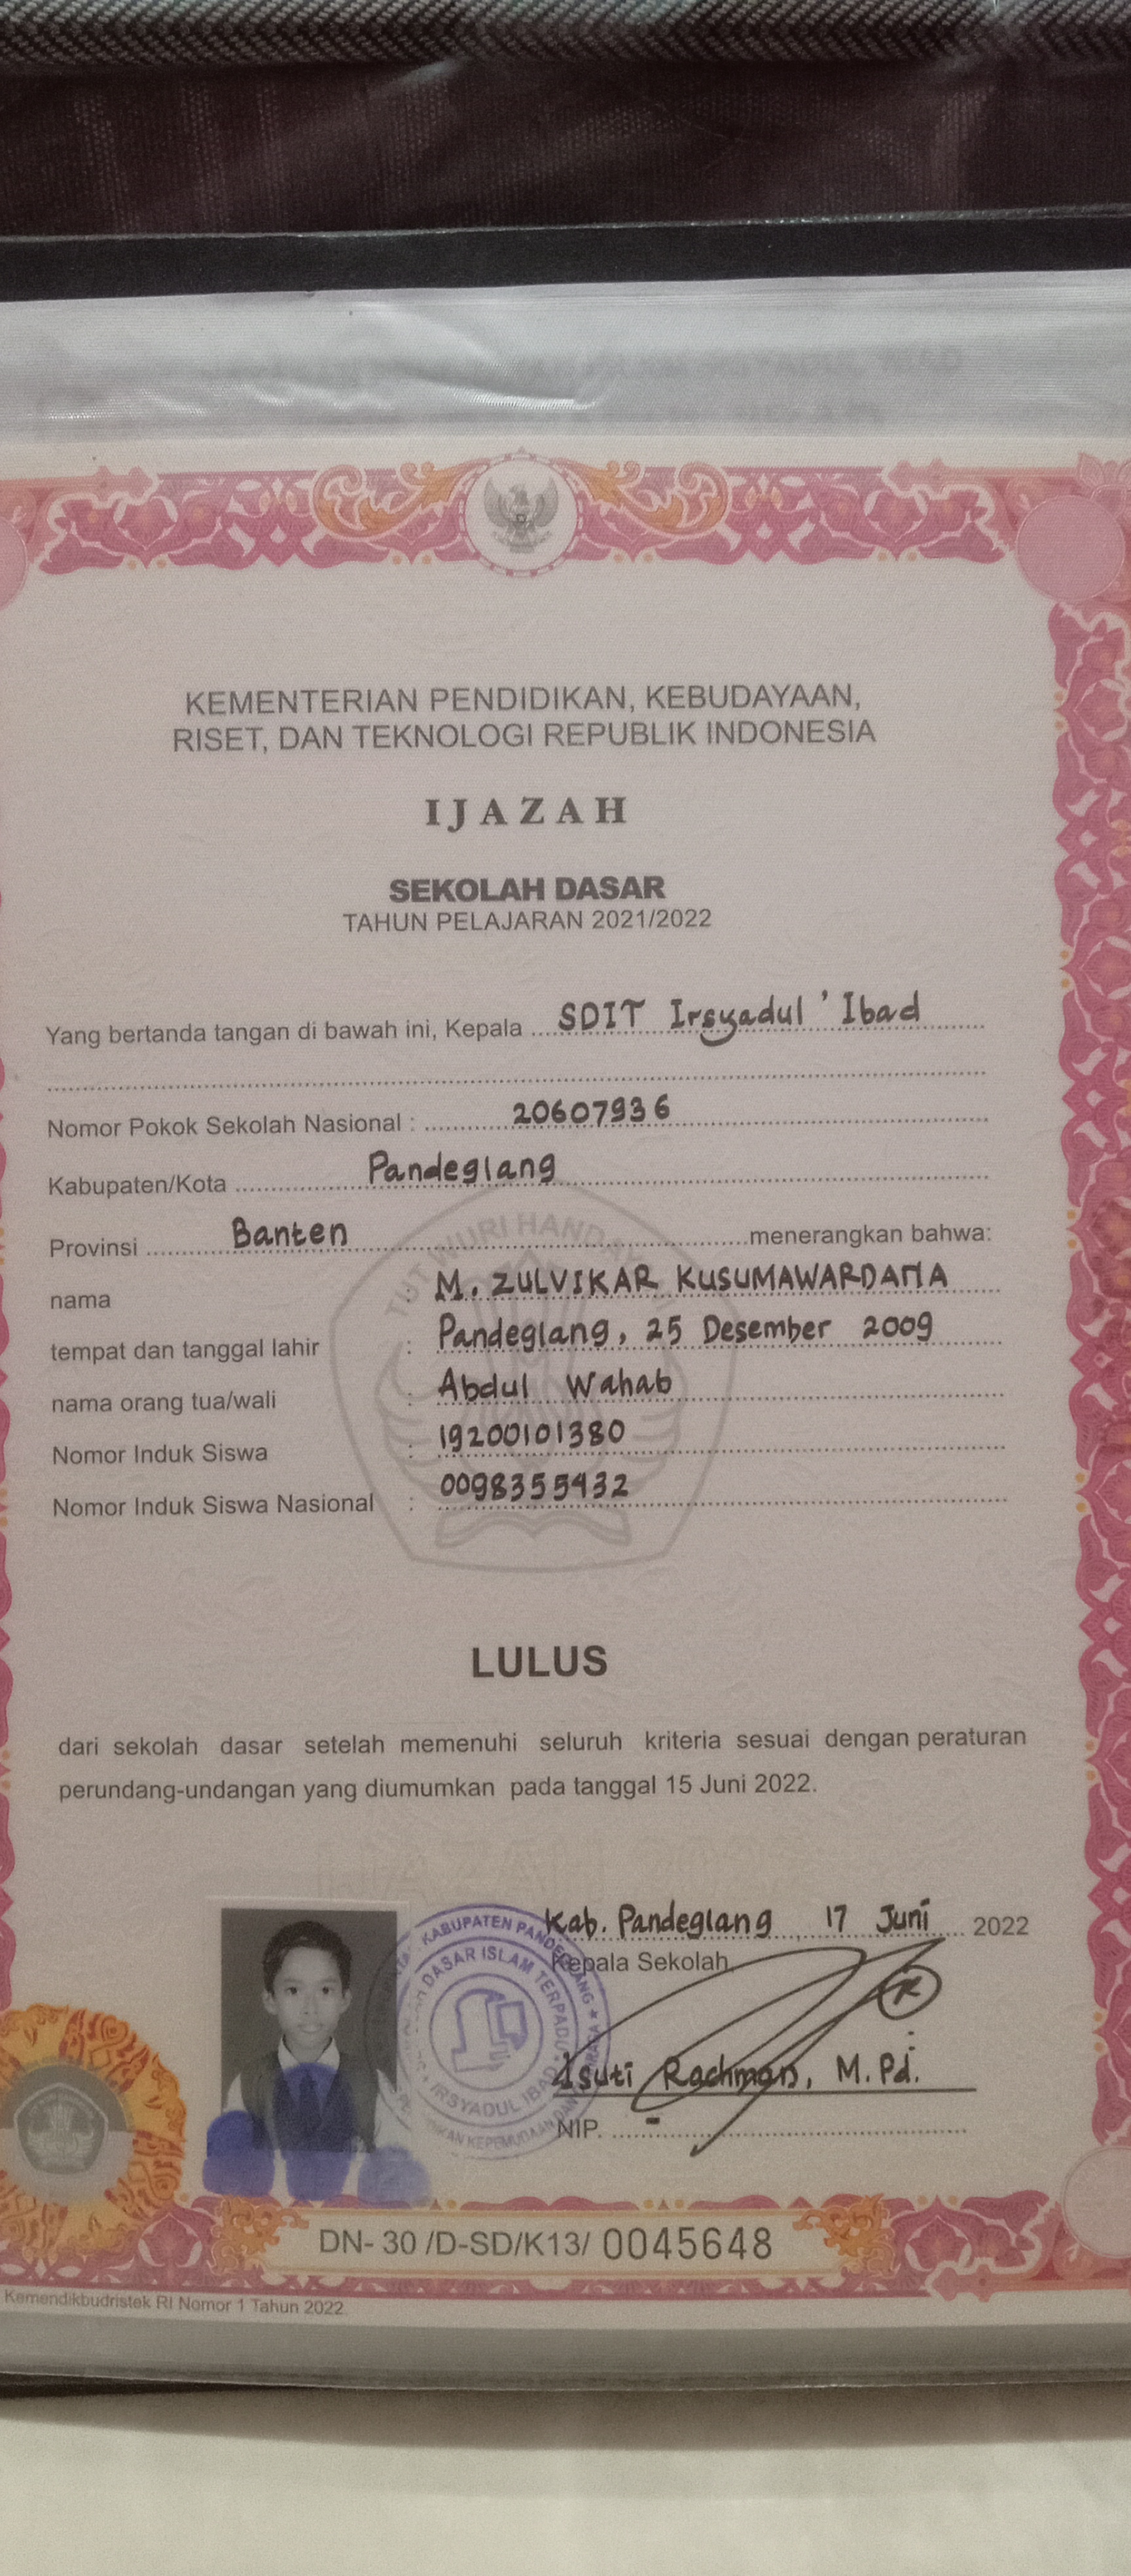 KEMENTERIAN PENDIDIKAN, KEBUDAYAAN,
RISET, DAN TEKNOLOGI REPUBLIK INDONESIA
IJAZAH
SEKOLAH DASAR
TAHUN PELAJARAN 2021/2022
Yang bertanda tangan di bawah ini, Kepala SDIT Irsyadul 'Ibad
Nomor Pokok Sekolah Nasional : 20607936
Kabupaten/Kota Pandeglang
Provinsi Banten menerangkan bahwa:
nama : M. ZULVIKAR KUSUMAWARDANA
tempat dan tanggal lahir : Pandeglang, 25 Desember 2009
nama orang tua/wali : Abdul Wahab
Nomor Induk Siswa : 19200101380
Nomor Induk Siswa Nasional : 0098355432
TUT WURI HANDAYANI
LULUS
dari sekolah dasar setelah memenuhi seluruh kriteria sesuai dengan peraturan
perundang-undangan yang diumumkan pada tanggal 15 Juni 2022.
Kab. Pandeglang, 17 Juni 2022
Kepala Sekolah,
KABUPATEN PANDEGLANG
DASAR ISLAM TERPADU
IRSYADUL IBAD
Asuti Rachman, M.Pd.
NIP. -
DN- 30 /D-SD/K13/ 0045648
Kemendikbudristek RI Nomor 1 Tahun 2022